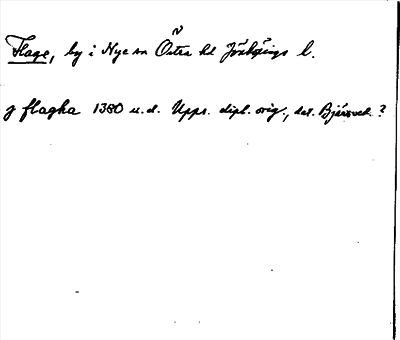 Flage, by i Nye sn Östra hd Jönköpings l.
j flagha 1380 u.d. Upps. dipl. orig., dat. Bjärsved ?